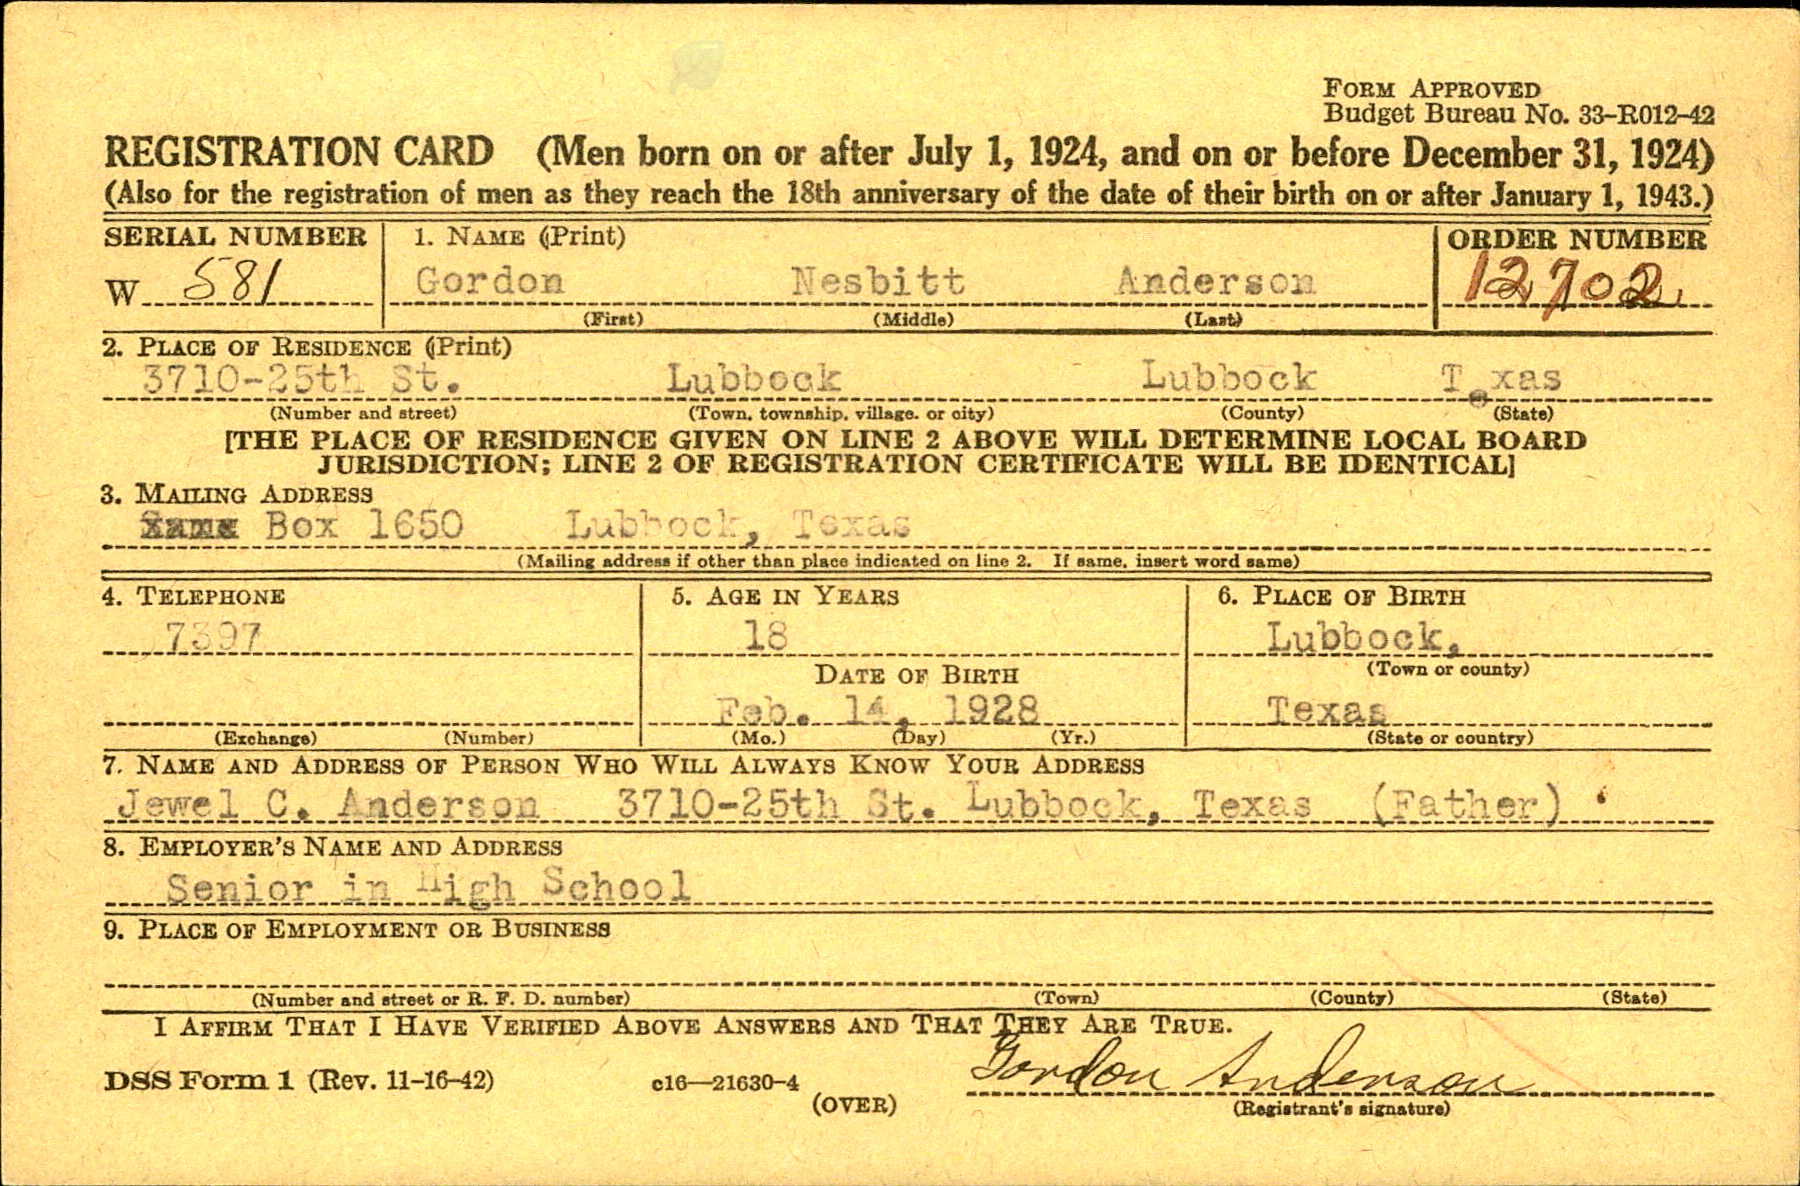 FORM APPROVED
Budget Bureau No. 33-R012-42
REGISTRATION CARD (Men born on or after July 1, 1924, and on or before December 31, 1924)
(Also for the registration of men as they reach the 18th anniversary of the date of their birth on or after January 1, 1943.)
SERIAL NUMBER 1. NAME (Print) ORDER NUMBER
W 581 Gordon Nesbitt Anderson 12702
(First) (Middle) (Last)
2. PLACE OF RESIDENCE (Print)
3710-25th St. Lubbock Lubbock Texas
(Number and street) (Town, township, village, or city) (County) (State)
[THE PLACE OF RESIDENCE GIVEN ON LINE 2 ABOVE WILL DETERMINE LOCAL BOARD
JURISDICTION; LINE 2 OF REGISTRATION CERTIFICATE WILL BE IDENTICAL]
3. MAILING ADDRESS
Box 1650 Lubbock, Texas
(Mailing address if other than place indicated on line 2. If same, insert word same)
4. TELEPHONE 5. AGE IN YEARS 6. PLACE OF BIRTH
7397 18 Lubbock,
DATE OF BIRTH (Town or county)
Feb. 14, 1928 Texas
(Exchange) (Number) (Mo.) (Day) (Yr.) (State or country)
7. NAME AND ADDRESS OF PERSON WHO WILL ALWAYS KNOW YOUR ADDRESS
Jewel C. Anderson 3710-25th St. Lubbock, Texas (Father)
8. EMPLOYER'S NAME AND ADDRESS
Senior in High School
9. PLACE OF EMPLOYMENT OR BUSINESS
(Number and street or R. F. D. number) (Town) (County) (State)
I AFFIRM THAT I HAVE VERIFIED ABOVE ANSWERS AND THAT THEY ARE TRUE.
DSS Form 1 (Rev. 11-16-42) c16—21630-4 Gordon Anderson
(OVER) (Registrant's signature)